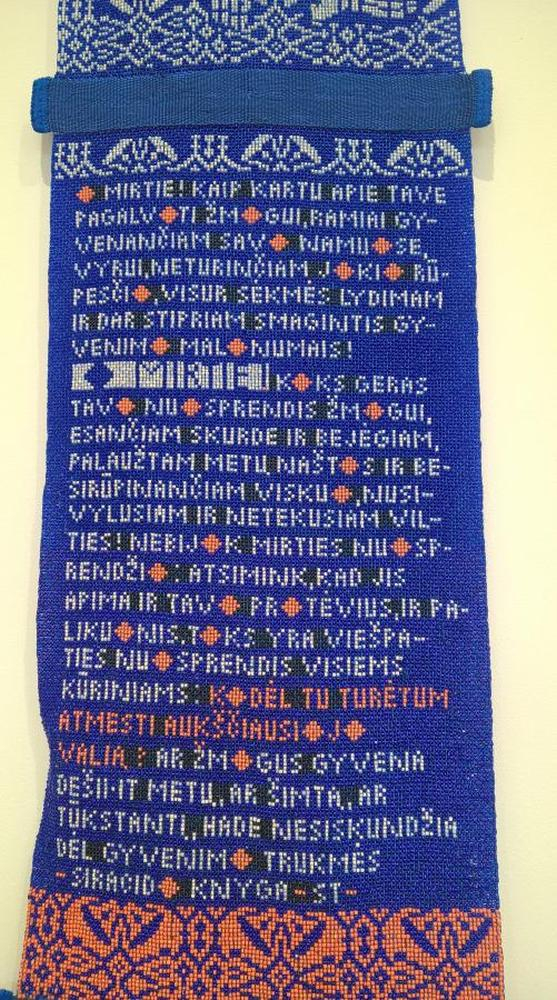 O MIRTIE! KAIP KARTU APIE TAVE
PAGALVOTI ŽMOGUI, RAMIAI GY-
VENANČIAM SAVO NAMUOSE,
VYRUI, NETURINČIAM JOKIO RŪ-
PESČIO, VISUR SĖKMĖS LYDIMAM
IR DAR STIPRIAM SMAGINTIS GY-
VENIMO MALONUMAIS!
O MIRTIE! KOKS GERAS
TAVO NUOSPRENDIS ŽMOGUI,
ESANČIAM SKURDE IR BEJĖGIAM,
PALAUŽTAM METŲ NAŠTOS IR BE-
SIRŪPINANČIAM VISKUO, NUSI-
VYLUSIAM IR NETEKUSIAM VIL-
TIES! NEBIJOK MIRTIES NUOSP-
RENDŽIO: ATSIMINK, KAD JIS
APIMA IR TAVO PROTĖVIUS, IR PA-
LIKUONIS. TOKS YRA VIEŠPA-
TIES NUOSPRENDIS VISIEMS
KŪRINIAMS. KODĖL TU TURĖTUM
ATMESTI AUKŠČIAUSIOJO
VALIĄ? AR ŽMOGUS GYVENA
DEŠIMT METŲ, AR ŠIMTĄ, AR
TŪKSTANTĮ, HADE NESISKUNDŽIA
DĖL GYVENIMO TRUKMĖS
- SIRACIDO KNYGA - ST -